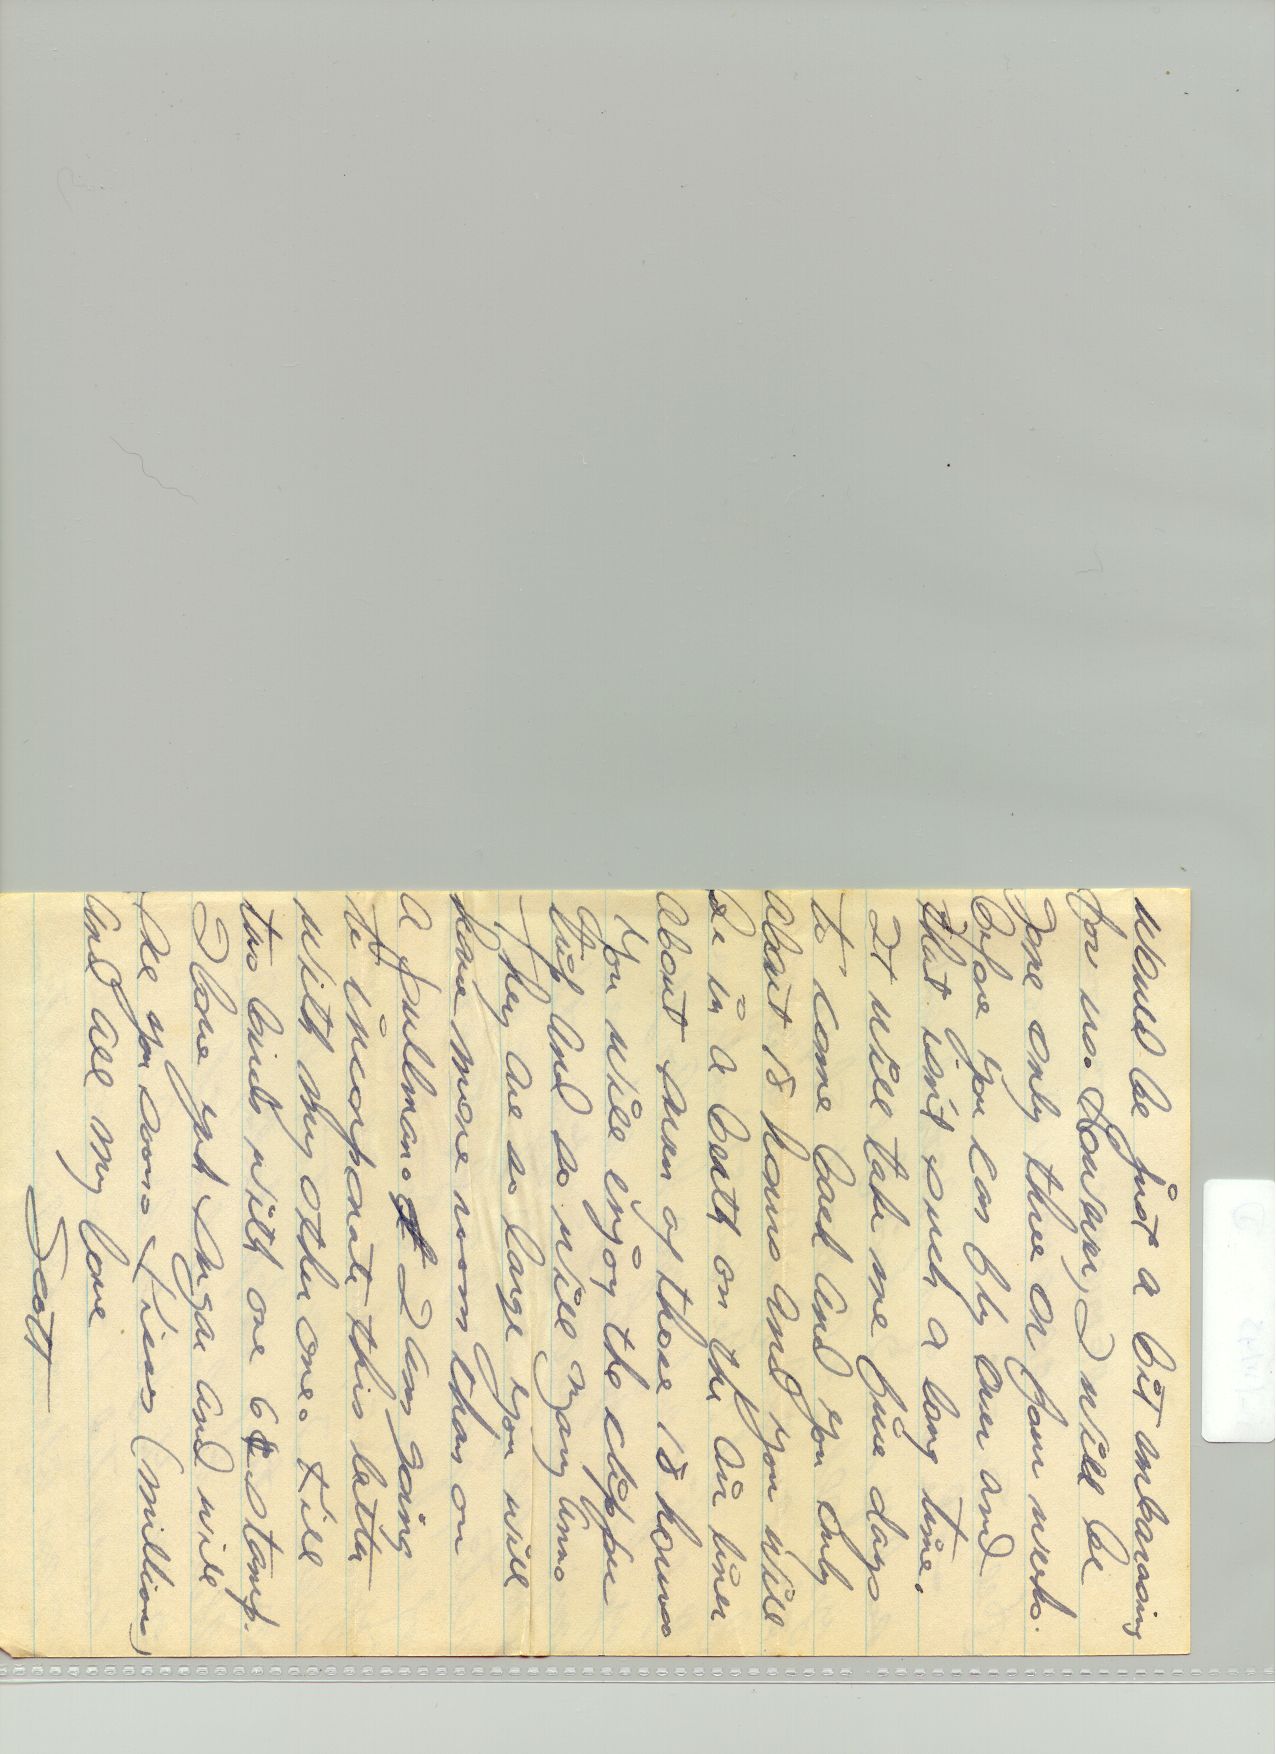 would be just a bit embarasing
for us. However, I will be
gone only three or four weeks.
Before you can fly over and
that isn't such a long time.
It will take me five days
to come back and you only
about 18 hours and you will
be in a berth on the air liner
about seven of those 18 hours
You will enjoy the clipper
trip and so will Mary Anna
They are so large you will
have more room than on
a pullman. I am going
to incorporate this letter
with my other one. Kill
two birds with one 6¢ stamp.
I love you Sugar and will
be you soon. Kisses (million)
And all my love
Scott